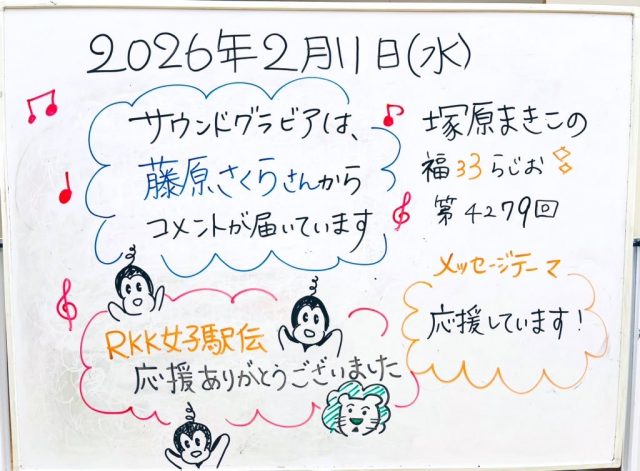 2026年2月11日(水)
サウンドグラビアは、
藤原さくらさんから
コメントが届いています
塚原まきこの
福33らじお
第4279回
メッセージテーマ
応援しています!
RKK女子駅伝
応援ありがとうございました